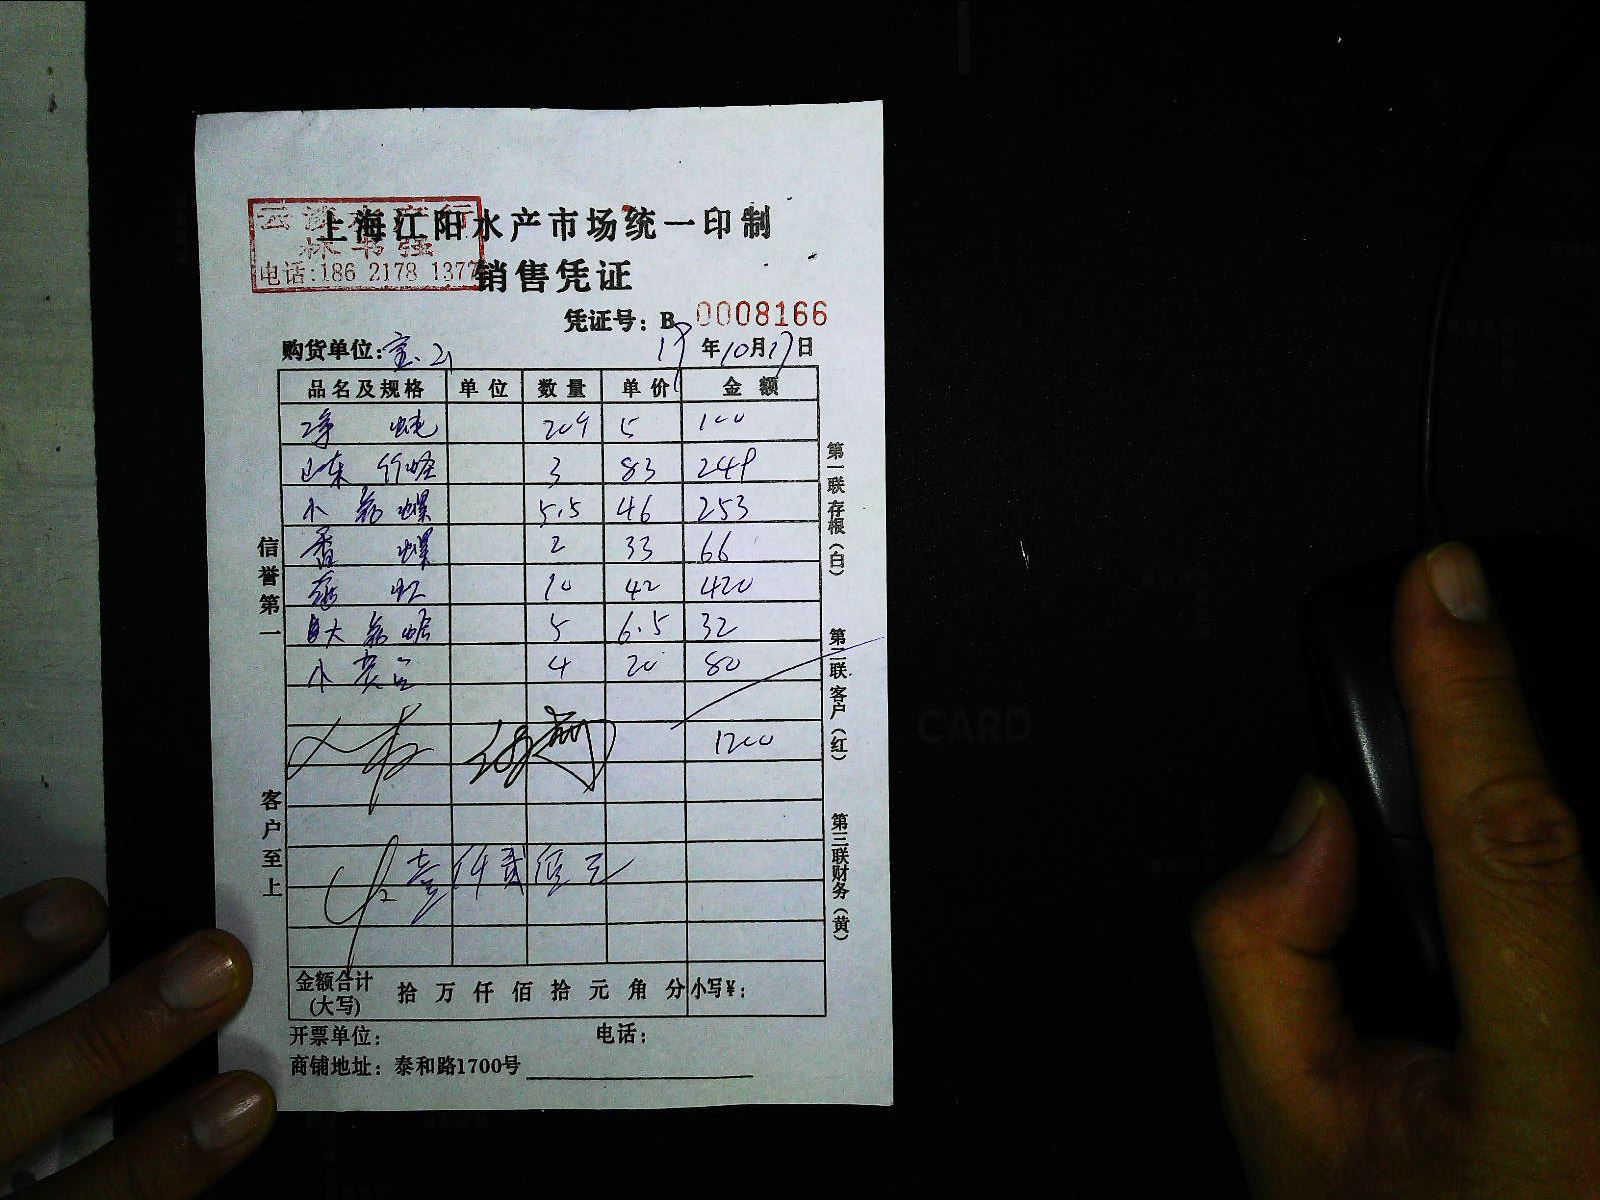 上海江阳水产市场统一印制
电话:186 2178 1377
销售凭证
凭证号：B 0008166
购货单位: 19年10月17日
品名及规格 单位 数量 单价 金额
净 5 100
山东竹蛏 3 83 249
小 螺 5.5 46 253
香螺 2 33 66
虾 10 42 420
大 5 6.5 32
小 4 20 80
1200
壹仟贰佰元
金额合计(大写) 拾万仟佰拾元角分 小写¥：
开票单位： 电话：
商铺地址：泰和路1700号
信誉第一
客户至上
第一联存根(白)
第二联客户(红)
第三联财务(黄)